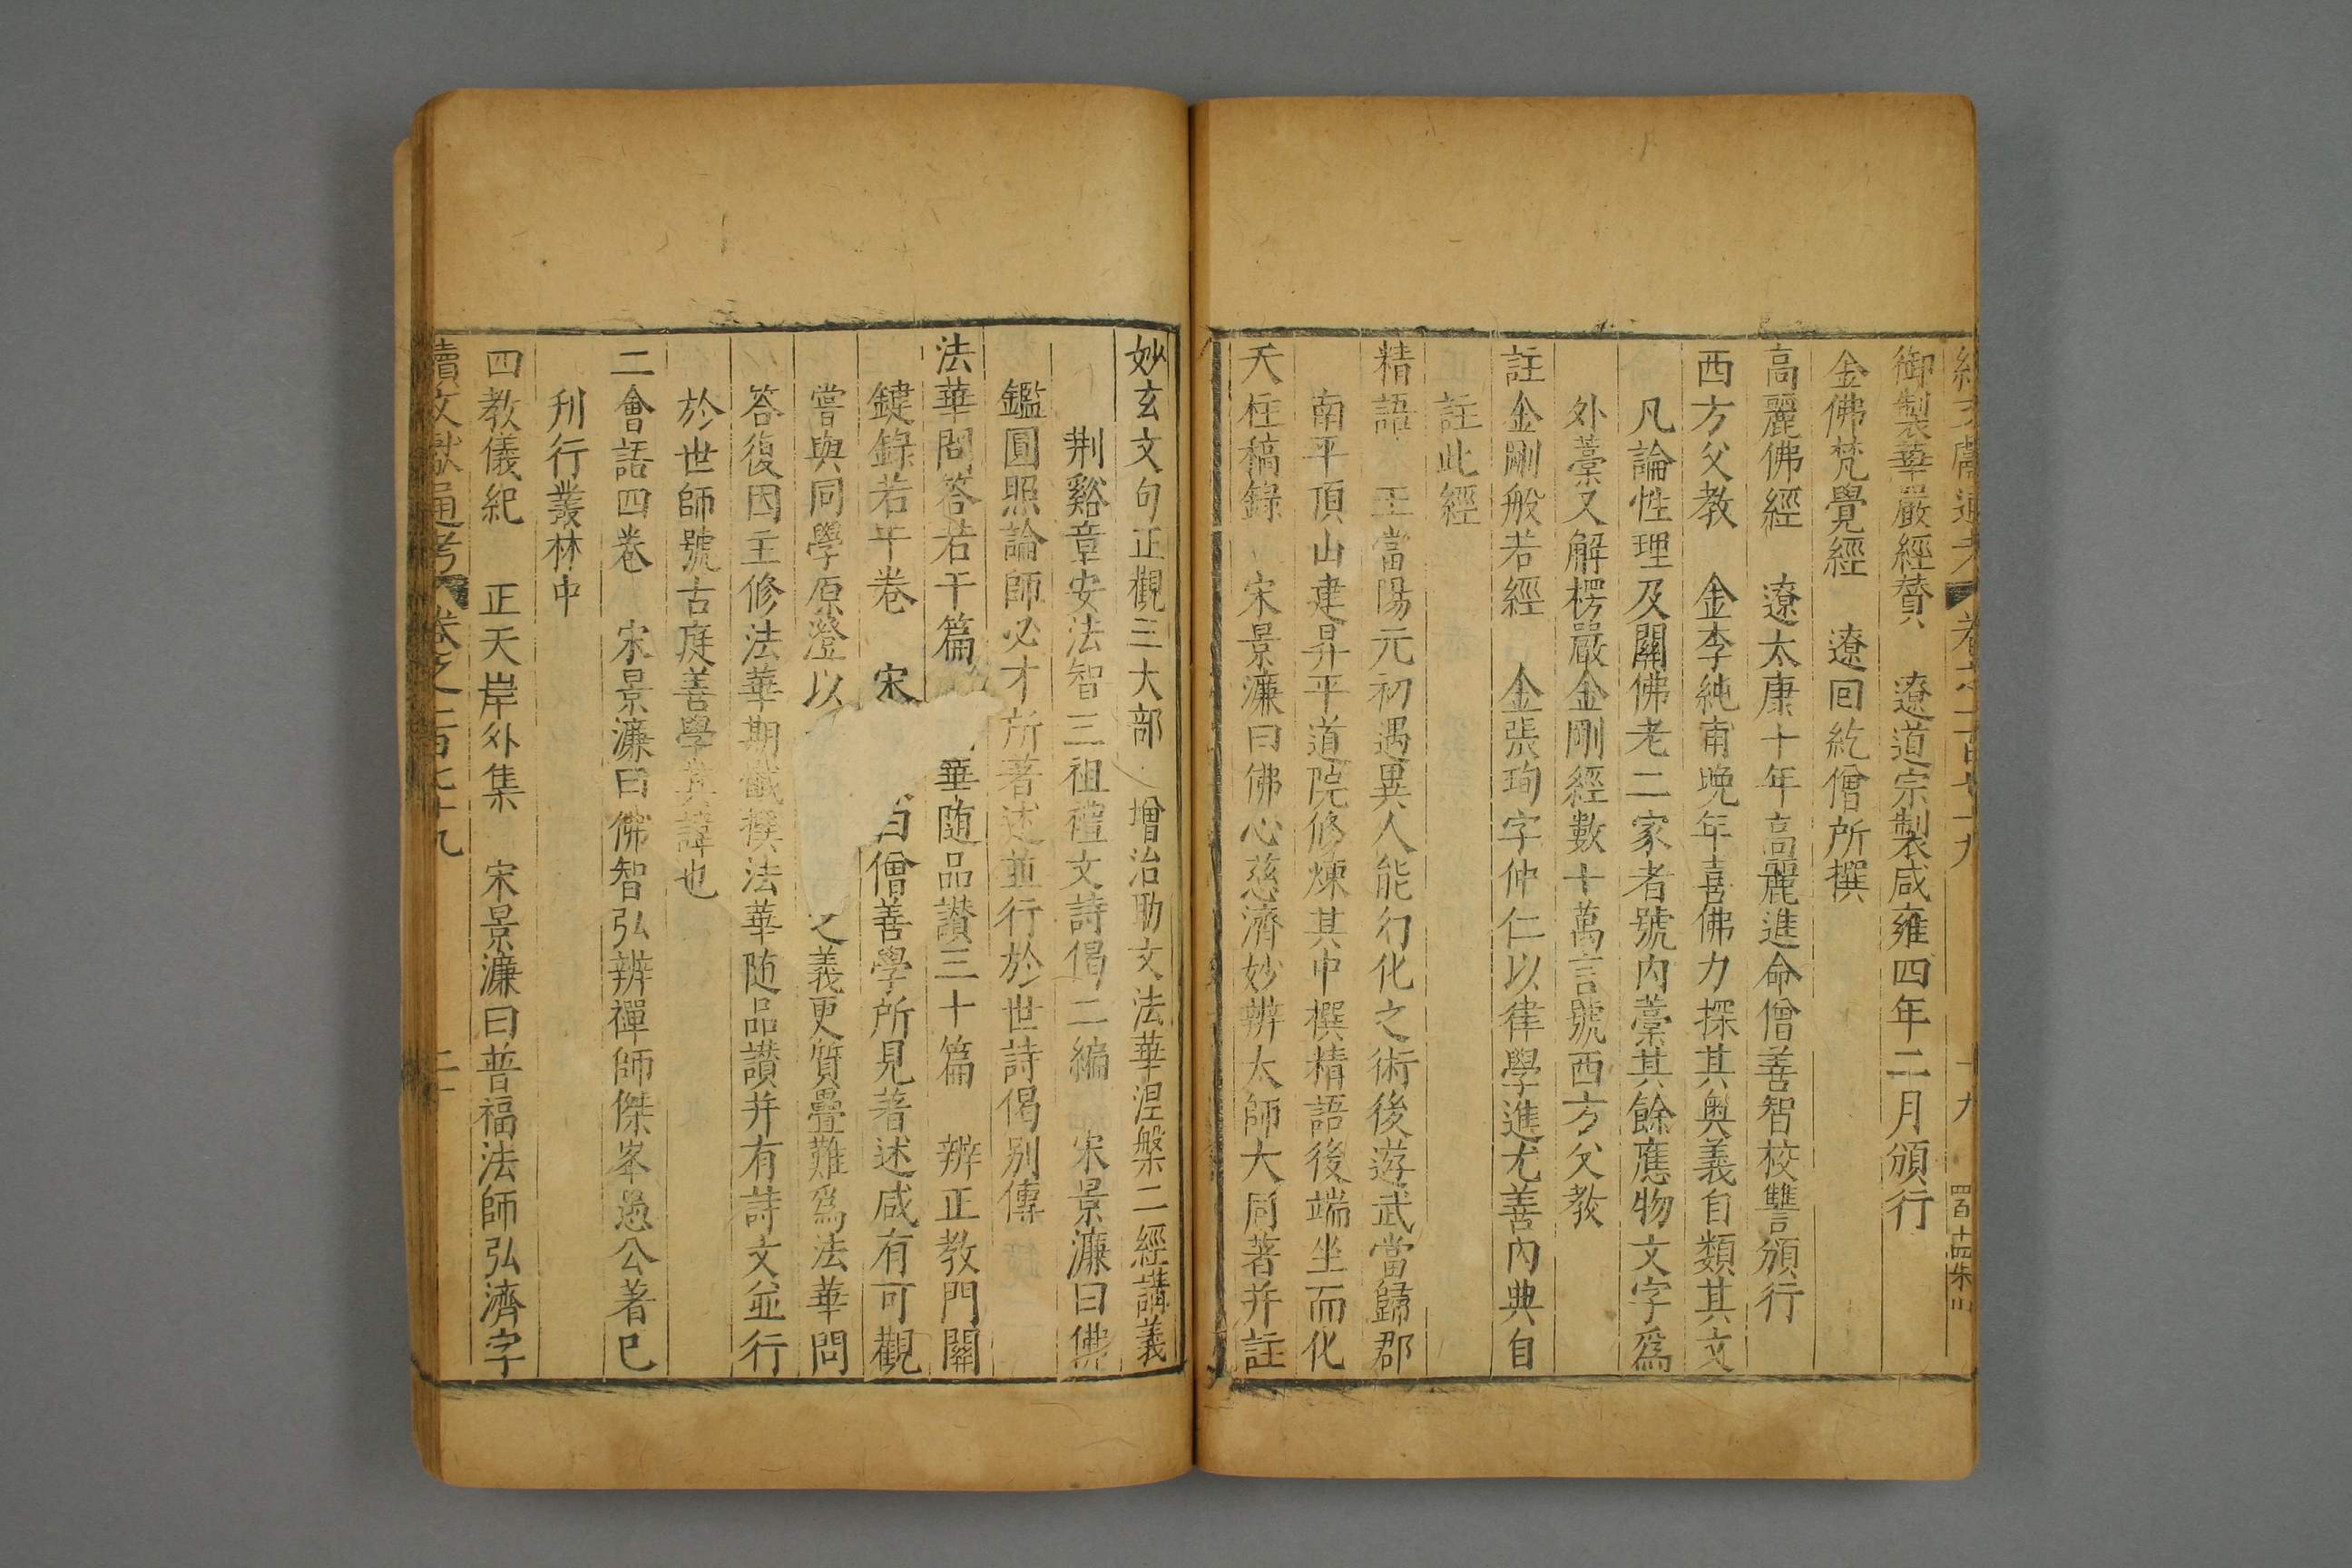 御製華嚴經贊 遼道宗製咸雍四年二月頒行
金佛梵覺經 遼回紇僧所撰
高麗佛經 遼太康十年高麗進命僧善智校讐頒行
西方父教 金李純甫晚年喜佛力探其奧義自類其文
凡論性理及關佛老二家者號內藁其餘應物文字爲
外藁又解楞嚴金剛經數十萬言號西方父教
註金剛般若經 金張珣字仲仁以律學進尤善內典自
註此經
精語 王當陽元初遇異人能幻化之術後遊武當歸郡
南平頂山建昇平道院修煉其中撰精語後端坐而化
天柱稿錄 宋景濂曰佛心慈濟妙辨大師大同著并註
妙玄文句正觀三大部 增治助文法華涅槃二經講義
荆谿章安法智三祖禮文詩偈二編 宋景濂曰佛
鑑圓照論師必才所著述並行於世詩偈別傳
法華問答若干篇 華随品讃三十篇 辨正教門關
鍵錄若干卷 宋 曰僧善學所見著述咸有可觀
嘗與同學原澄以 之義更質疊難爲法華問
答復因主修法華期懺撰法華随品讃并有詩文並行
於世師號古庭善學其諱也
二會語四卷 宋景濂曰佛智弘辨禪師傑峯愚公著已
刋行叢林中
四教儀紀 正天岸外集 宋景濂曰普福法師弘濟字
續文獻通考 卷之二百七十九 二十